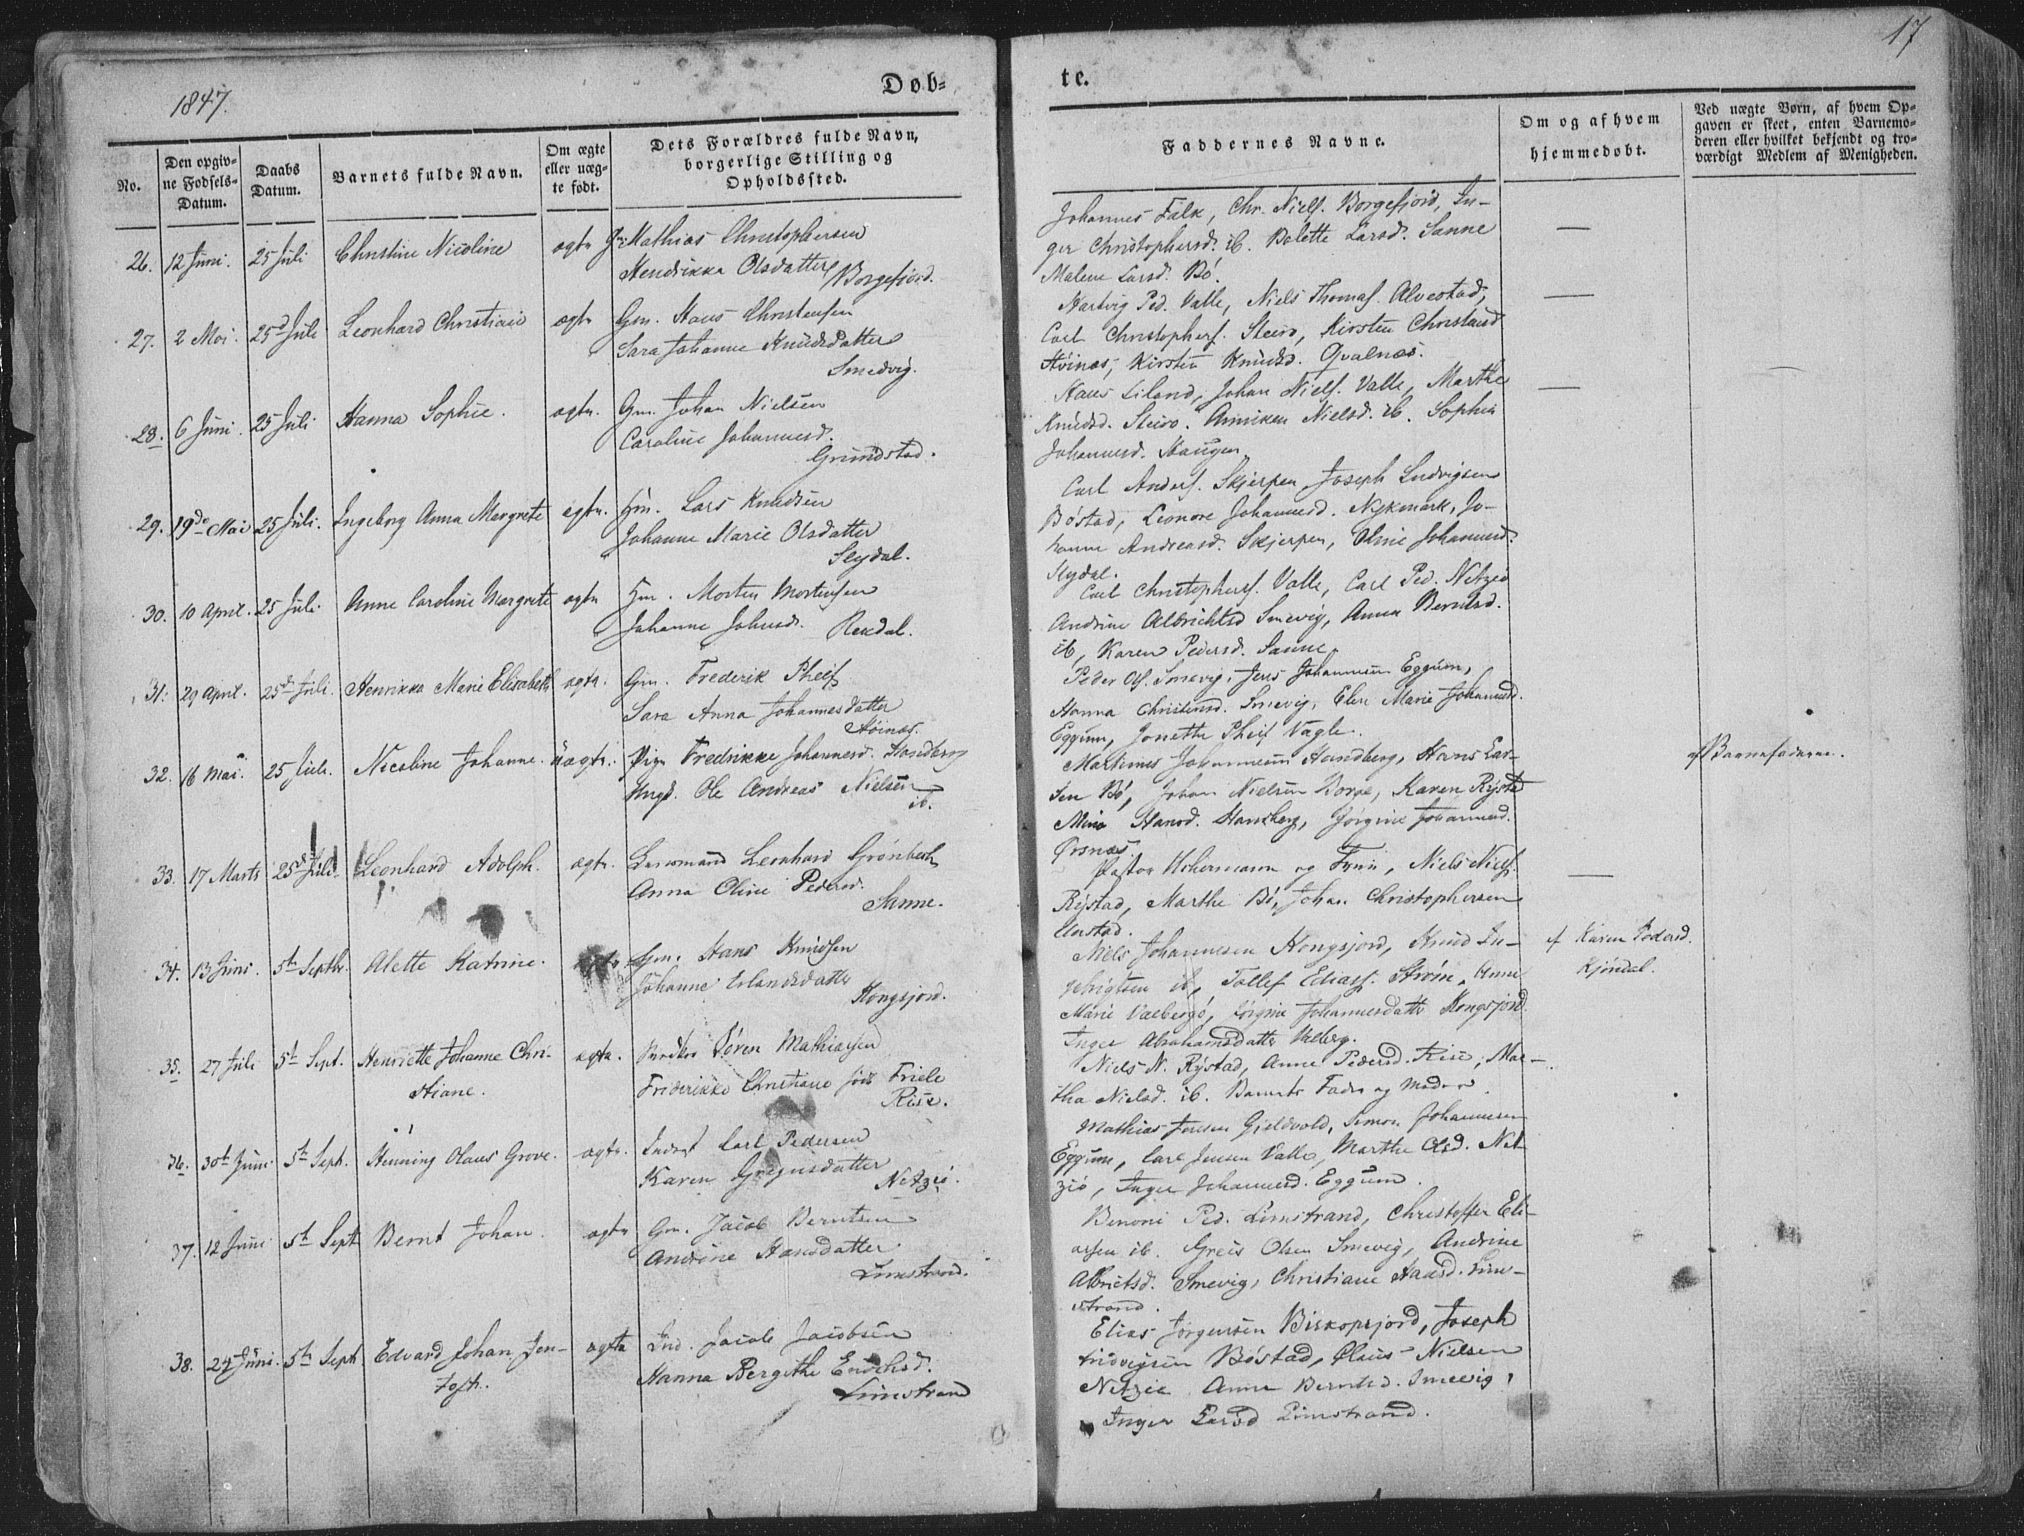 17
1847.
Døb-
te.
No.
Den opgiv-
ne Fødsels-
Datum.
Daabs
Datum.
Barnets fulde Navn.
Om ægte
eller uæg-
te født.
Dets Forældres fulde Navn,
borgerlige Stilling og
Opholdssted.
Faddernes Navne.
Om og af hvem
hjemmedøbt.
Ved uægte Børn, af hvem Op-
gaven er skeet, enten Barnemo-
deren eller hvilket bekjendt og tro-
værdigt Medlem af Menigheden.
26. 12 Juni. 25 Juli Christine Nicoline ægte Mathias Christophersen
Hendrikka Olsdatter
Borgefjord.
Johannes Falk, Chr. Niels. Borgefjord, In-
ger Christophersd. ib. Bolette Larsd. Sanne
Malene Larsd. Bö.
27. 2 Mai 25d Juli Leonhard Christian ægte Gm. Hans Christensen
Sara Johanne Knudsdatter
Smedvig.
Hartvig Ped. Valle, Niels Thomas. Alvestad,
Carl Christophers. Steiro, Kirsten Christensd
Höinæs, Kirsten Knudsd. Qvalnæs.
28. 6 Juni. 25 Juli Hanna Sophie. ægte. Gm. Johan Nielsen
Caroline Johannesd.
Grimstad.
Hans Liland, Johan Niels. Valle, Marthe
Knudsd. Steiro. Anniken Nielsd. ib. Sophia
Johannesd. Haugen
29. 19de Mai 25 Juli. Ingeborg Anna Margrete ægte. Hm. Lars Knudsen
Johanne Marie Olsdatter
Slydal.
Carl Anders. Skjerpen Joseph Ludvigsen
Böstad, Leonore Johannesd. Nykmark, Jo-
hanne Andreasd. Skjerpen, Oline Johannesd.
Slydal.
30. 10 April. 25 Juli. Anne Caroline Margrete ægte Hm. Morten Mortensen
Johanne Johnsd. Rendal.
Carl Christophers. Valle, Carl Ped. Netziö
Andrine Albrichtsd Smevig, Anna Berntsd.
ib, Karen Pedersd. Sanne
31. 29 April. 25de Juli. Henrikka Marie Elisabeth ægte. Gm. Frederik Pheif
Sara Anna Johannesdatter
Höinæs.
Peder Ols. Smevig, Jens Johannesen Eggum,
Hanna Christensd. Smevig, Elen Marie Johannesd.
Eggum, Jonette Pheif Vagle.
32. 16 Mai. 25 Juli. Nicoline Johanne. uægte. Pige Fredrikke Johannesd. Handberg
Ungk. Ole Andreas Nielsen
ib.
Martines Johannesen Handberg, Hans Lar-
sen Bö, Johan Nielsen Borge, Karen Rystad
Mina Hansd. Handberg, Jørgine Johannesd.
Örsnæs
af Barnefaderen.
33. 17 Marts 25de Juli. Leonhard Adolph. ægte. Lensmand Leonhard Grönbech
Anna Oline Pedersd.
Sanne.
Pastor Ockermann og Frue, Niels Niels.
Rystad, Marthe Bö, Johan Christophersen
Uerstad.
34. 13 Juni. 5te Septbr. Alette Katrine. ægte Gm. Hans Knudsen
Johanne Erlandsdatter
Kongsjord.
Niels Johannesen Kongsjord, Knud In-
gebrigtsen ib, Tollef Elias. Ström, Anne
Marie Valbergö, Jörgine Johannesdatter Kongsjord.
Inger Abrahamsdatter Valberg.
af Karen Pedersd.
Kjöndal.
35. 27 Juli 5te Sept. Henriette Johanne Chri-
stiane.
ægte. Sören Mathiesen
Friderikke Christiane föd Friele
Rise.
Niels N. Rystad, Anne Pedersd. Rise, Mar-
tha Nielsd. ib. Barnets Fader og Moder
36. 30te Juni 5te Sept. Henning Olaus Grove. ægte. Inderst Carl Pedersen
Karen Gregusdatter
Netziö.
Mathias Jensen Gieldvold, Simon Johannesen
Eggum, Carl Jensen Valle, Marthe Olsd. Net-
ziö, Inger Johannesd. Eggum.
37. 12 Juni 5te Sept Bernt Johan. ægte Gm. Jacob Berntsen
Andrine Hansdatter
Limstrand.
Benoni Ped. Limstrand, Christoffer Eli-
assen ib. Greis Olsen Smevig, Andrine
Albrietsd. Smevig, Christiane Hansd. Lim-
strand.
38. 24 Juni. 5te Sept Edvard Johan Jen-
toft.
ægte Ind. Jacob Jacobsen
Hanna Bergithe Enochsd.
Limstrand
Elias Jörgensen Biskopsjord, Joseph
Ludvigsen Böstad, Olaus Nielsen
Netziö Anne Berntsd. Smevig,
Inger Larsd Limstrand.